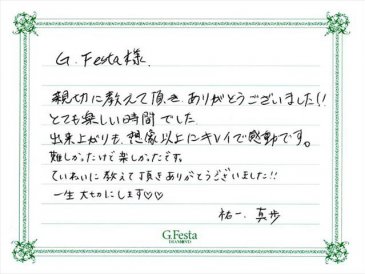 G. Festa様.
親切に教えて頂き、ありがとうございました!!
とても楽しい時間でした
出来上がりも、想像以上にキレイで感動です。
難しかったけど楽しかったです。
ていねいに教えて頂きありがとうございました!!
一生大切にします♡♡
祐一、真歩
G.Festa
DIAMOND